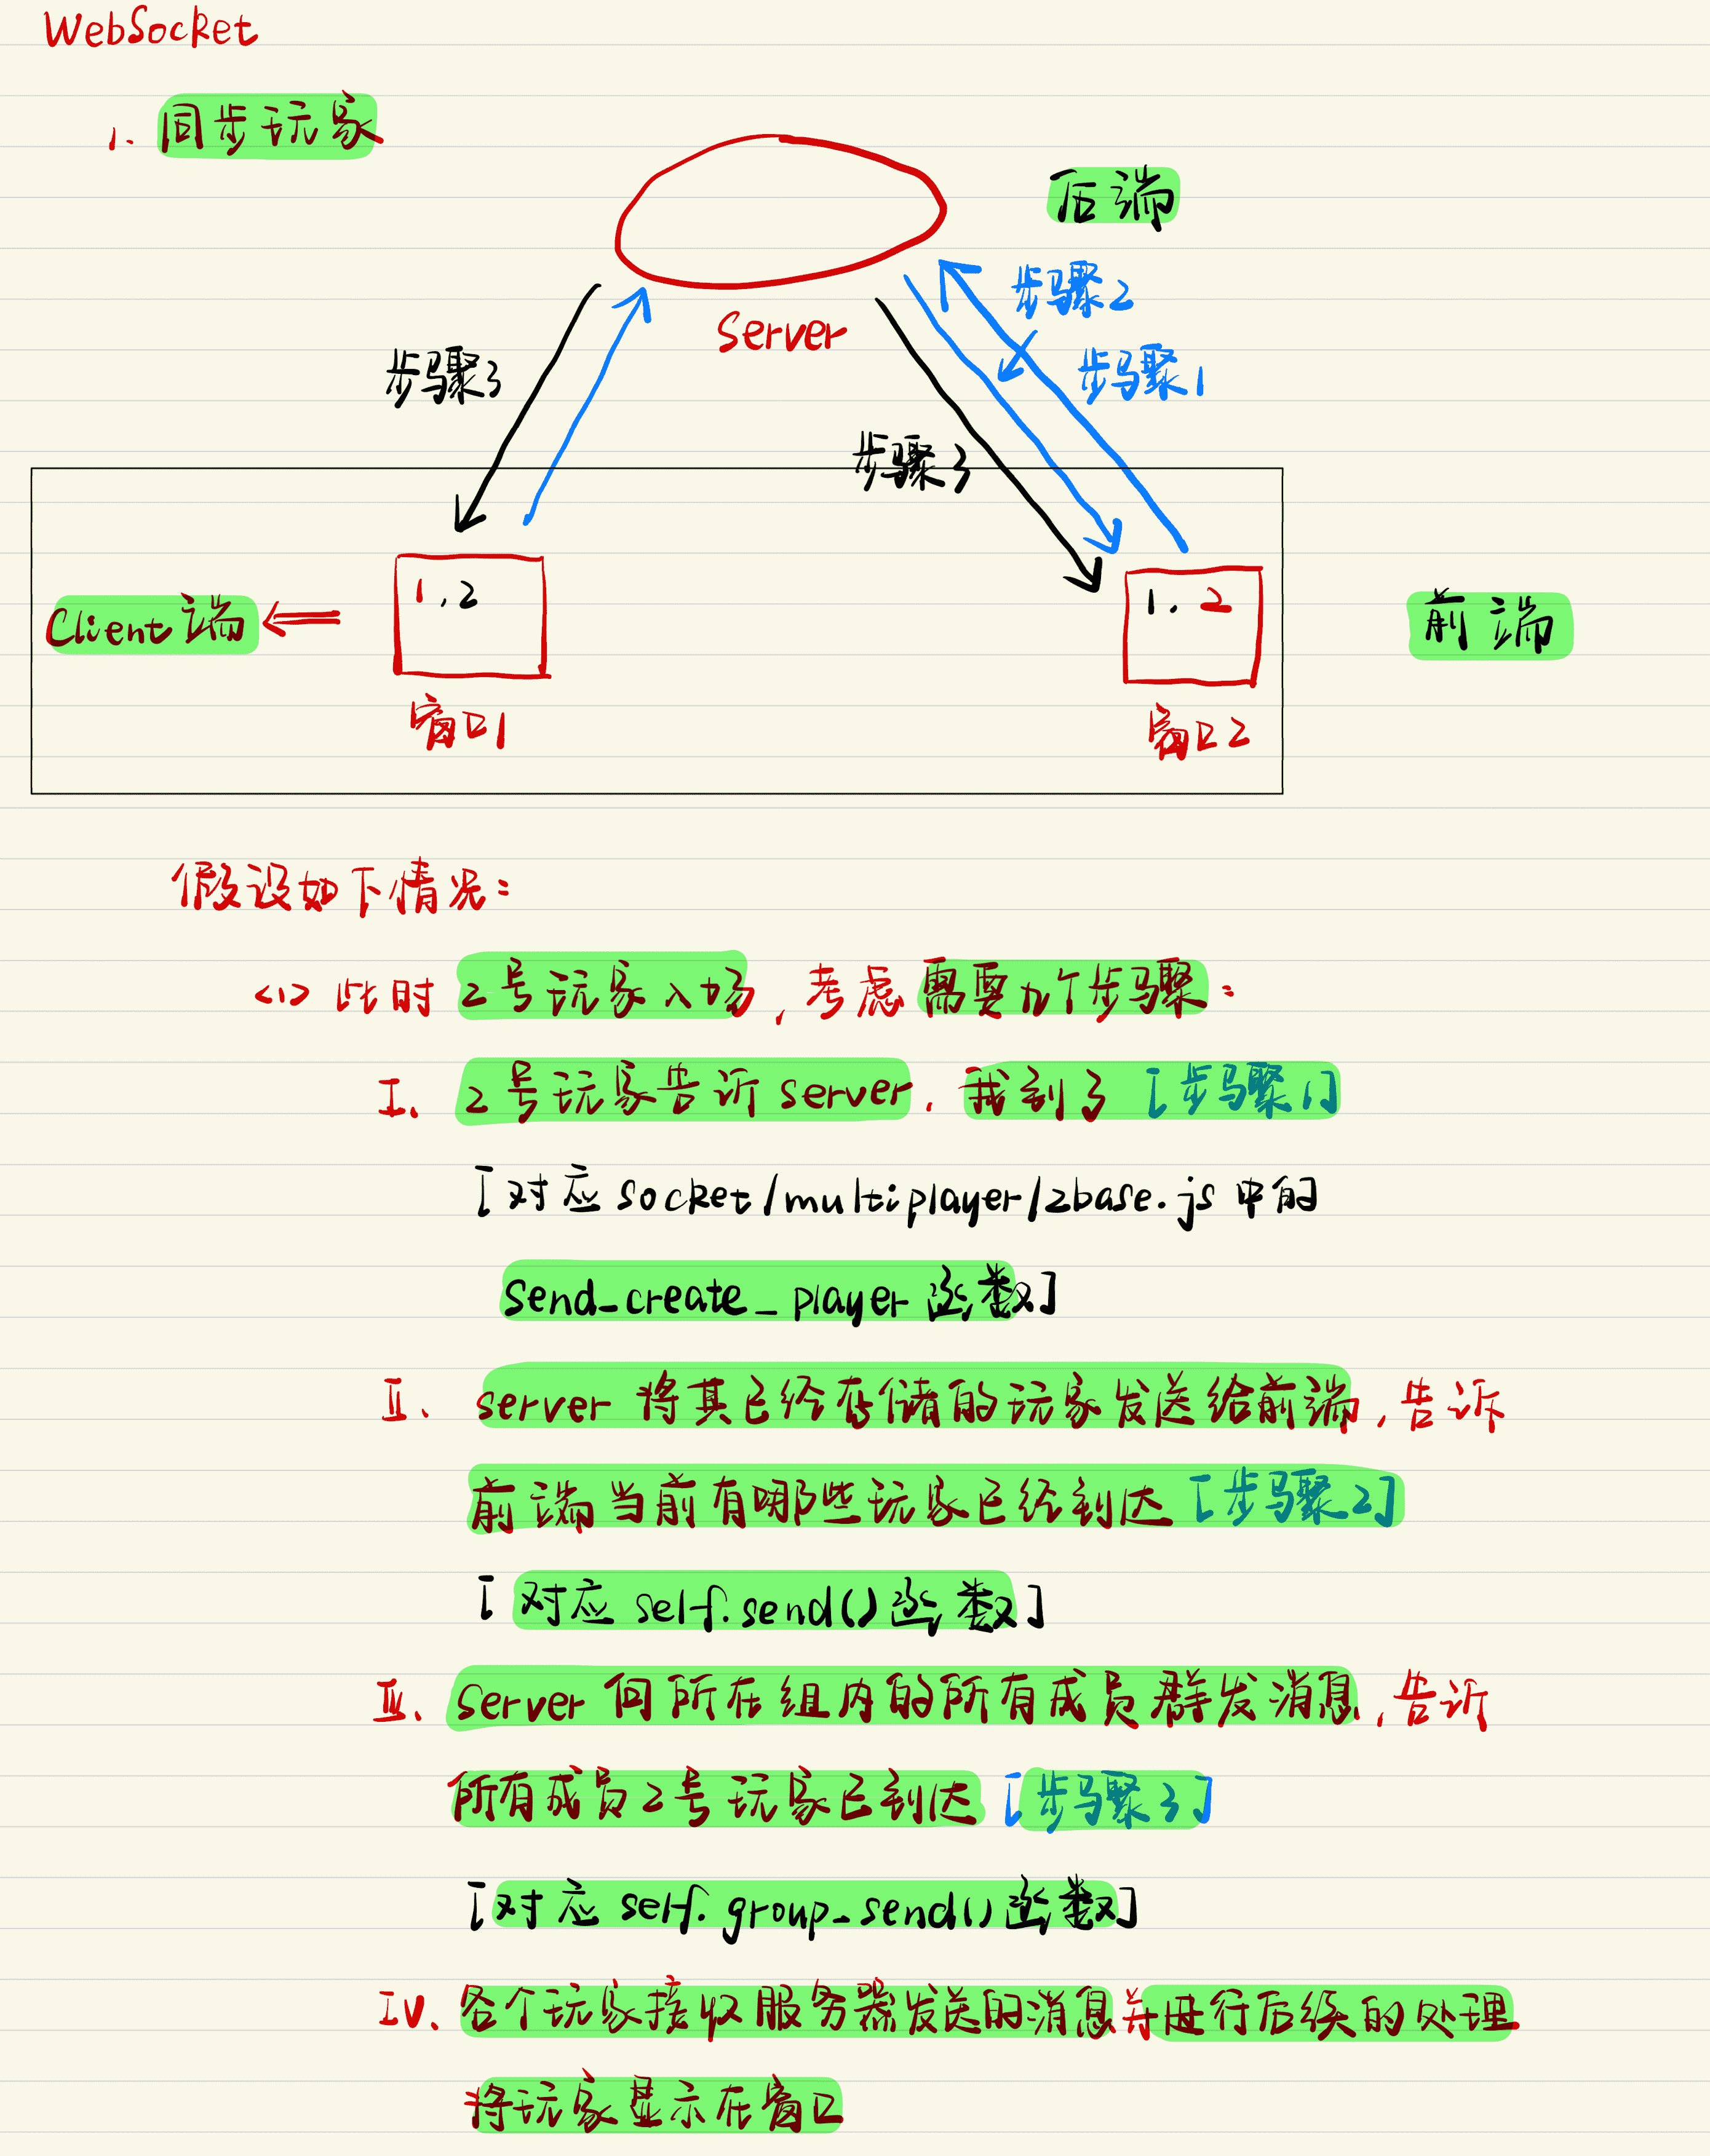 WebSocket
1. 同步玩家
后端
步骤2
Server
步骤3
步骤1
步骤3
1,2
1. 2
Client端
前端
窗口1
窗口2
假设如下情况:
<1> 此时2号玩家入场,考虑需要几个步骤:
I. 2号玩家告诉server, 我到了[步骤1]
[对应socket/multiplayer/zbase.js中的
send_create_player函数]
II. server将其已经存储的玩家发送给前端,告诉
前端当前有哪些玩家已经到达[步骤2]
[对应self.send()函数]
III. Server向所在组内的所有成员群发消息,告诉
所有成员2号玩家已到达[步骤3]
[对应self.group_send()函数]
IV. 各个玩家接收服务器发送的消息并进行后续的处理
将玩家显示在窗口